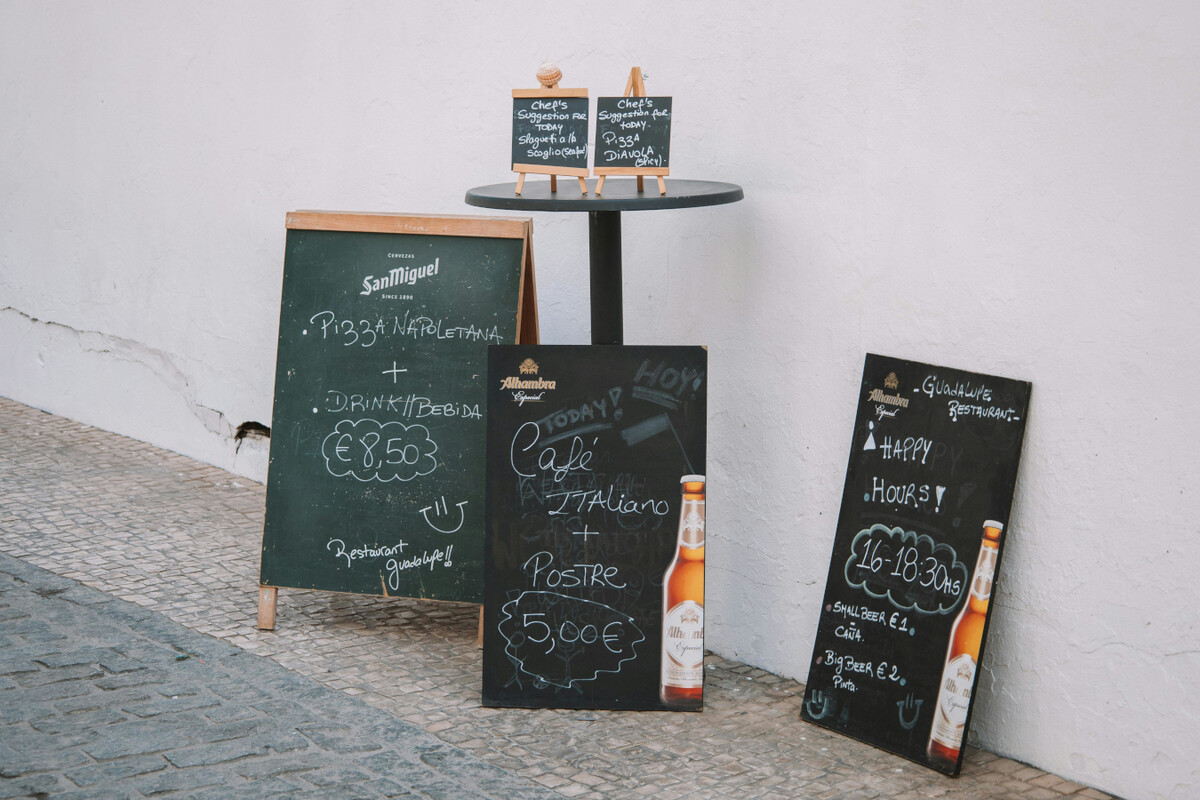 Chef's
Suggestion FOR
TODAY
Slagueti a lh
Scoglio (Seafod)
Chef's
Suggestion for
today.
Pizza
DiAVOLA
(Spicy).
CERVEZAS
SanMiguel
SINCE 1890
. Pizza NAPOLETANA
+
. D.RiNK//BEBiDA
€8,50
Restaurant
guadalupe!!
Alhambra
Especial
HOY!
TODAY!
Café
ITALiano
+
POSTRE
5,00€
Alhambra
Especial
Alhambra
Especial
- GUADALUPE
RESTAURANT -
HAPPY
. HOURS!
16-18:30HS
. SMALL BEER €1.
CAÑA.
. Big BEER €2.
Pinta.